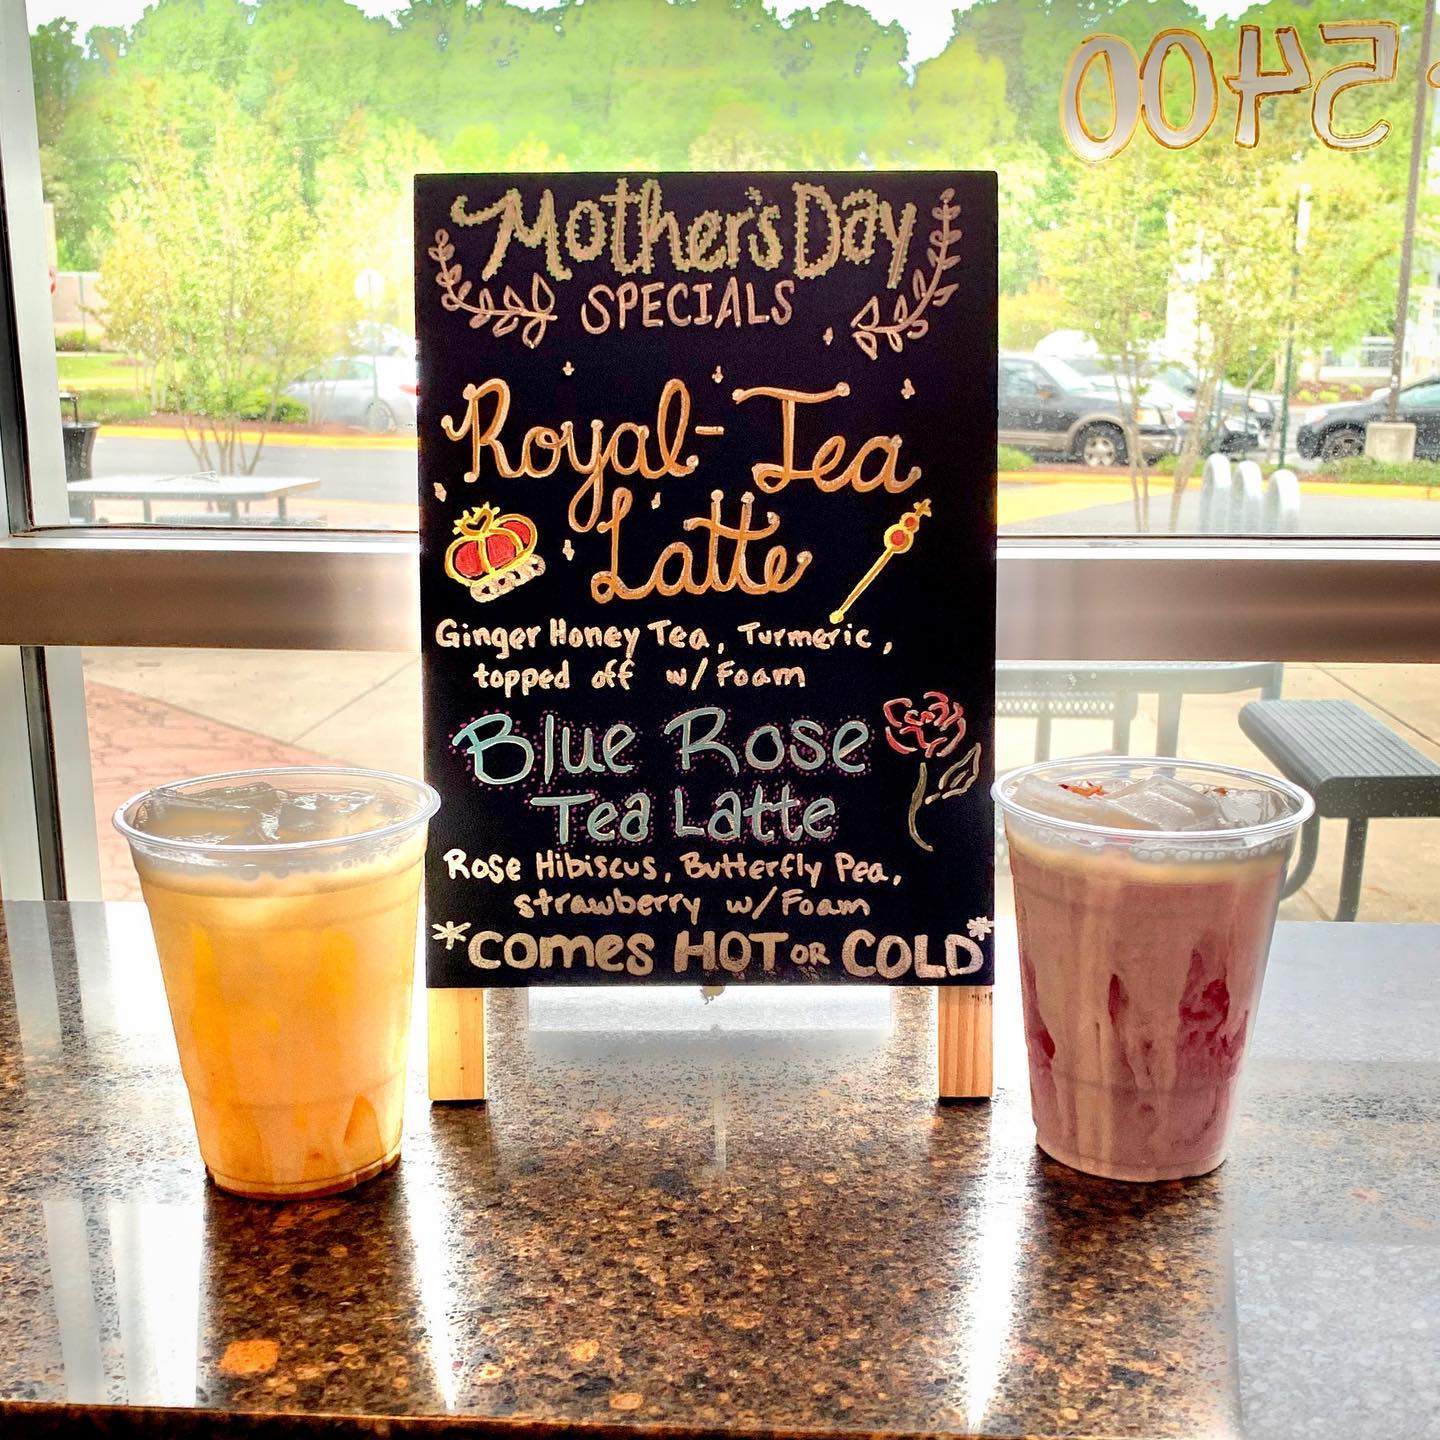 5400
Mother's Day
SPECIALS
Royal-Tea
Latte
Ginger Honey Tea, Turmeric,
topped off w/ Foam
Blue Rose
Tea Latte
Rose Hibiscus, Butterfly Pea,
strawberry w/ Foam
*COMES HOT OR COLD*